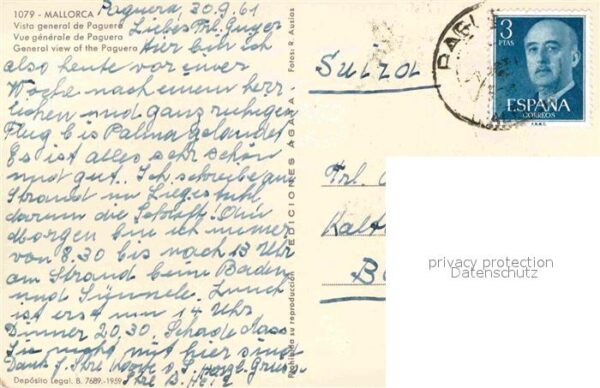 1079 - MALLORCA
Vista general de Paguera
Vue générale de Paguera
General view of the Paguera
Paguera 30.9.61
Liebes Frl.
Hier bin ich
also heute vor einer
Woche nach einem herr-
lichen und ganz ruhigen
Flug bis Palma gelandet
Es ist alles sehr schön
und gut. Ich schreibe am
Strand im Liegestuhl
darum die Schrift!
bin ich immer
von 8.30 bis nach 13 Uhr
am Strand beim Baden
und Sünnele. Lunch
ist erst um 14 Uhr
Dinner 20.30. Schade dass
Sie nicht mit hier sind
Dank f. Ihre
Ihre B.
Depósito Legal. B. 7689.-1959
Prohibida su reproducción
EDICIONES AGATA
Fotos: R. Ausios
Suiza
Frl.
3
PTAS
ESPAÑA
CORREOS
F.N.M.T.
privacy protection
Datenschutz